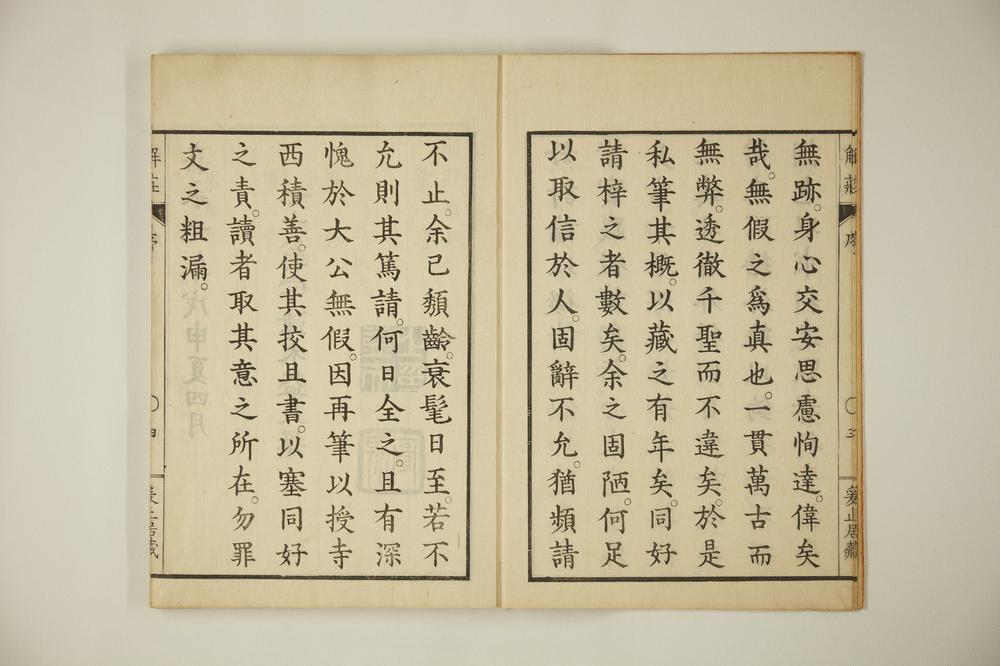 解莊
序
〇三
爰止居藏
無跡。身心交安思慮恂達。偉矣
哉。無假之爲真也。一貫萬古而
無弊。透徹千聖而不違矣。於是
私筆其概。以藏之有年矣。同好
請梓之者數矣。余之固陋。何足
以取信於人。固辭不允。猶頻請
不止。余已頽齡。衰髦日至。若不
允則其篤請。何日全之。且有深
愧於大公無假。因再筆以授寺
西積善。使其挍且書。以塞同好
之責。讀者取其意之所在。勿罪
文之粗漏。
戊申夏四月